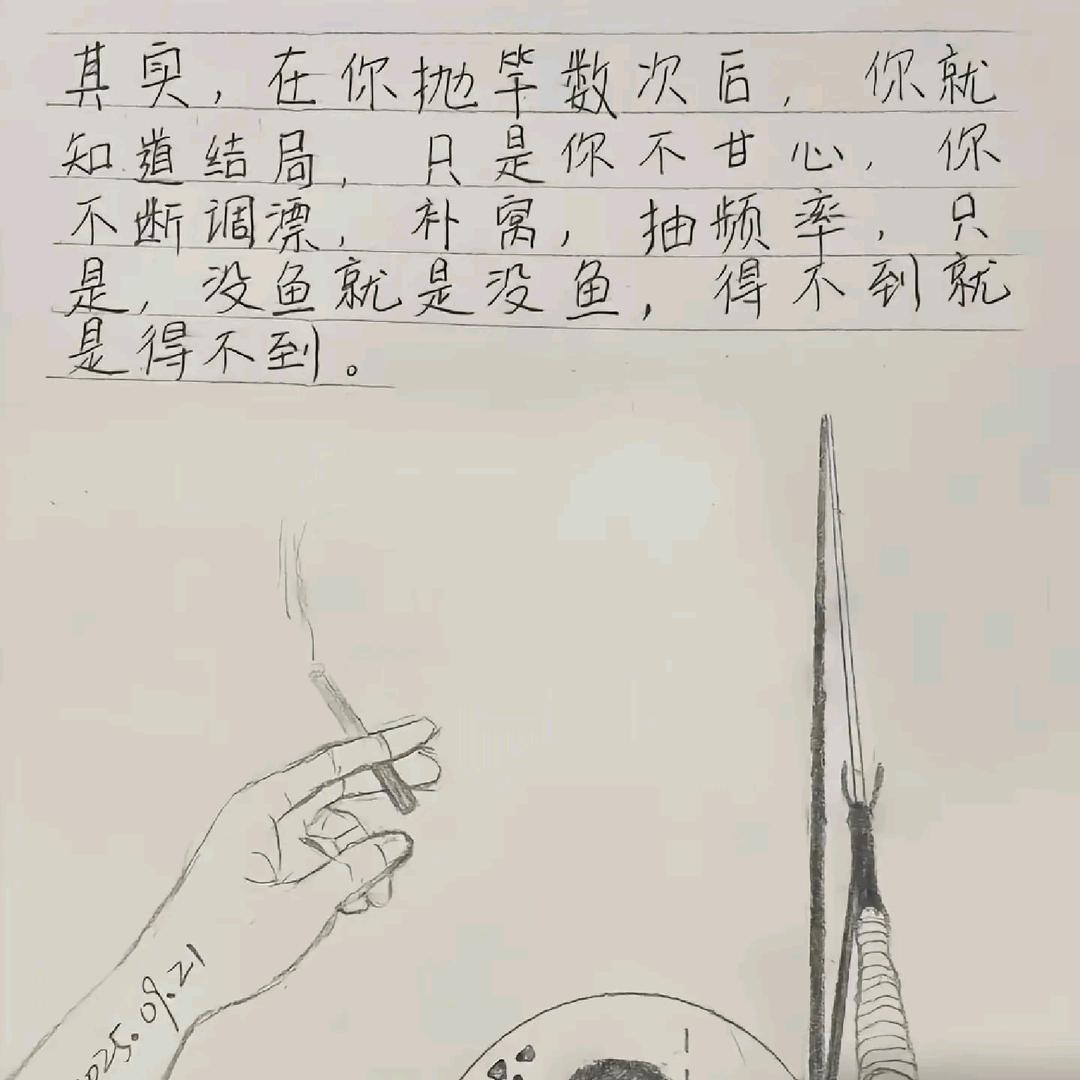 其实，在你抛竿数次后，你就
知道结局，只是你不甘心，你
不断调漂，补窝，抽频率，只
是，没鱼就是没鱼，得不到就
是得不到。
025.09.21